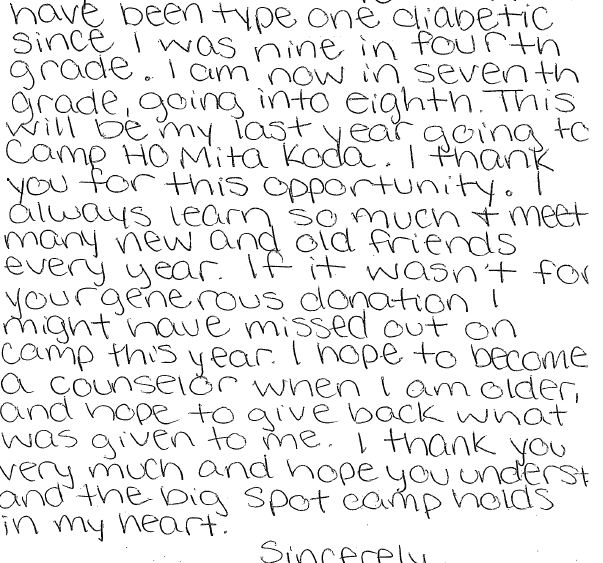 have been type one diabetic
since I was nine in fourth
grade. I am now in seventh
grade, going into eighth. This
will be my last year going to
Camp HO Mita Koda. I thank
you for this opportunity. I
always learn so much + meet
many new and old friends
every year. If it wasn't for
your generous donation I
might have missed out on
camp this year. I hope to become
a counselor when I am older,
and hope to give back what
was given to me. I thank you
very much and hope you underst
and the big spot camp holds
in my heart.
Sincerely